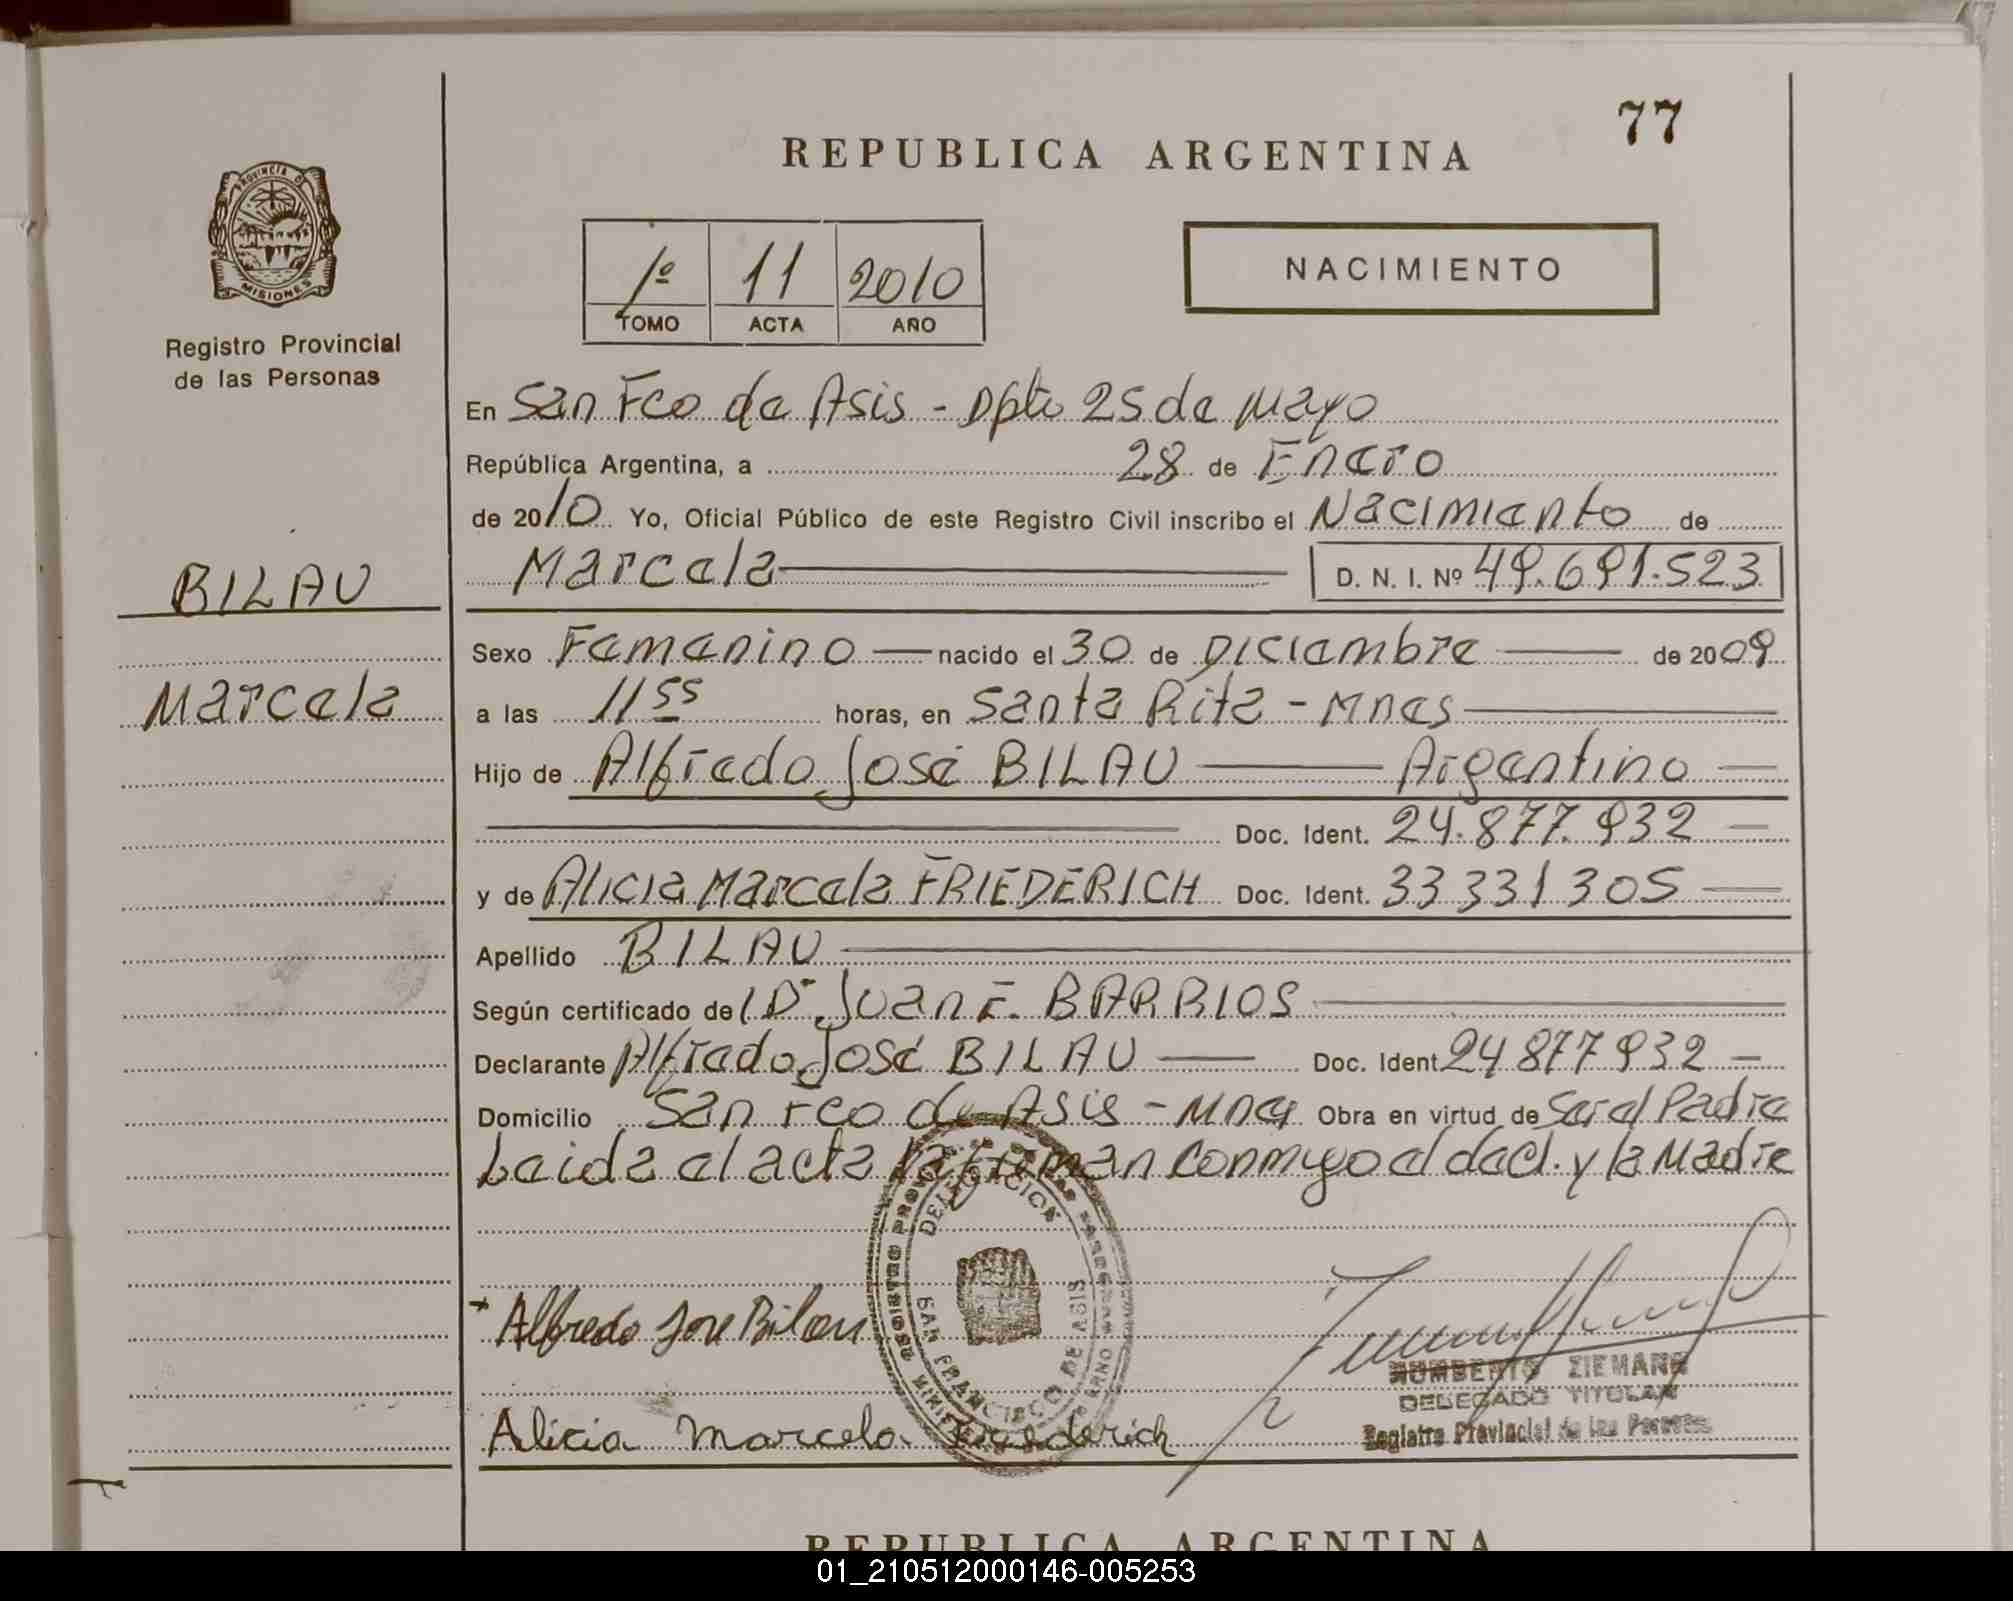 77
REPUBLICA ARGENTINA
PROVINCIA DE
MISIONES
Registro Provincial
de las Personas
1º 11 2010
TOMO ACTA AÑO
NACIMIENTO
En San Fco de Asis - Dpto 25 de Mayo
República Argentina, a 28 de Enero
de 2010 Yo, Oficial Público de este Registro Civil inscribo el Nacimiento de
Marcela D. N. I. Nº 49.691.523
BILAU
Marcela
Sexo Femenino nacido el 30 de Diciembre de 2009
a las 11 55 horas, en Santa Rita - Mnes
Hijo de Alfredo José BILAU Argentino
Doc. Ident. 24.877.932
y de Alicia Marcela FRIEDERICH Doc. Ident. 33 331 305
Apellido BILAU
Según certificado de Dr Juan F. BARRIOS
Declarante Alfredo José BILAU Doc. Ident. 24 877 932
Domicilio San Fco de Asis - Mnes Obra en virtud de Ser el Padre
Leida el acta la firman conmigo el decl. y la Madre
DELEGACION
SAN FRANCISCO DE ASIS
Alfredo Jose Bilau
Alicia Marcela Friederich
HUMBERTO ZIEMANN
DELEGADO TITULAR
Registro Provincial de las Personas
REPUBLICA ARGENTINA
01_210512000146-005253